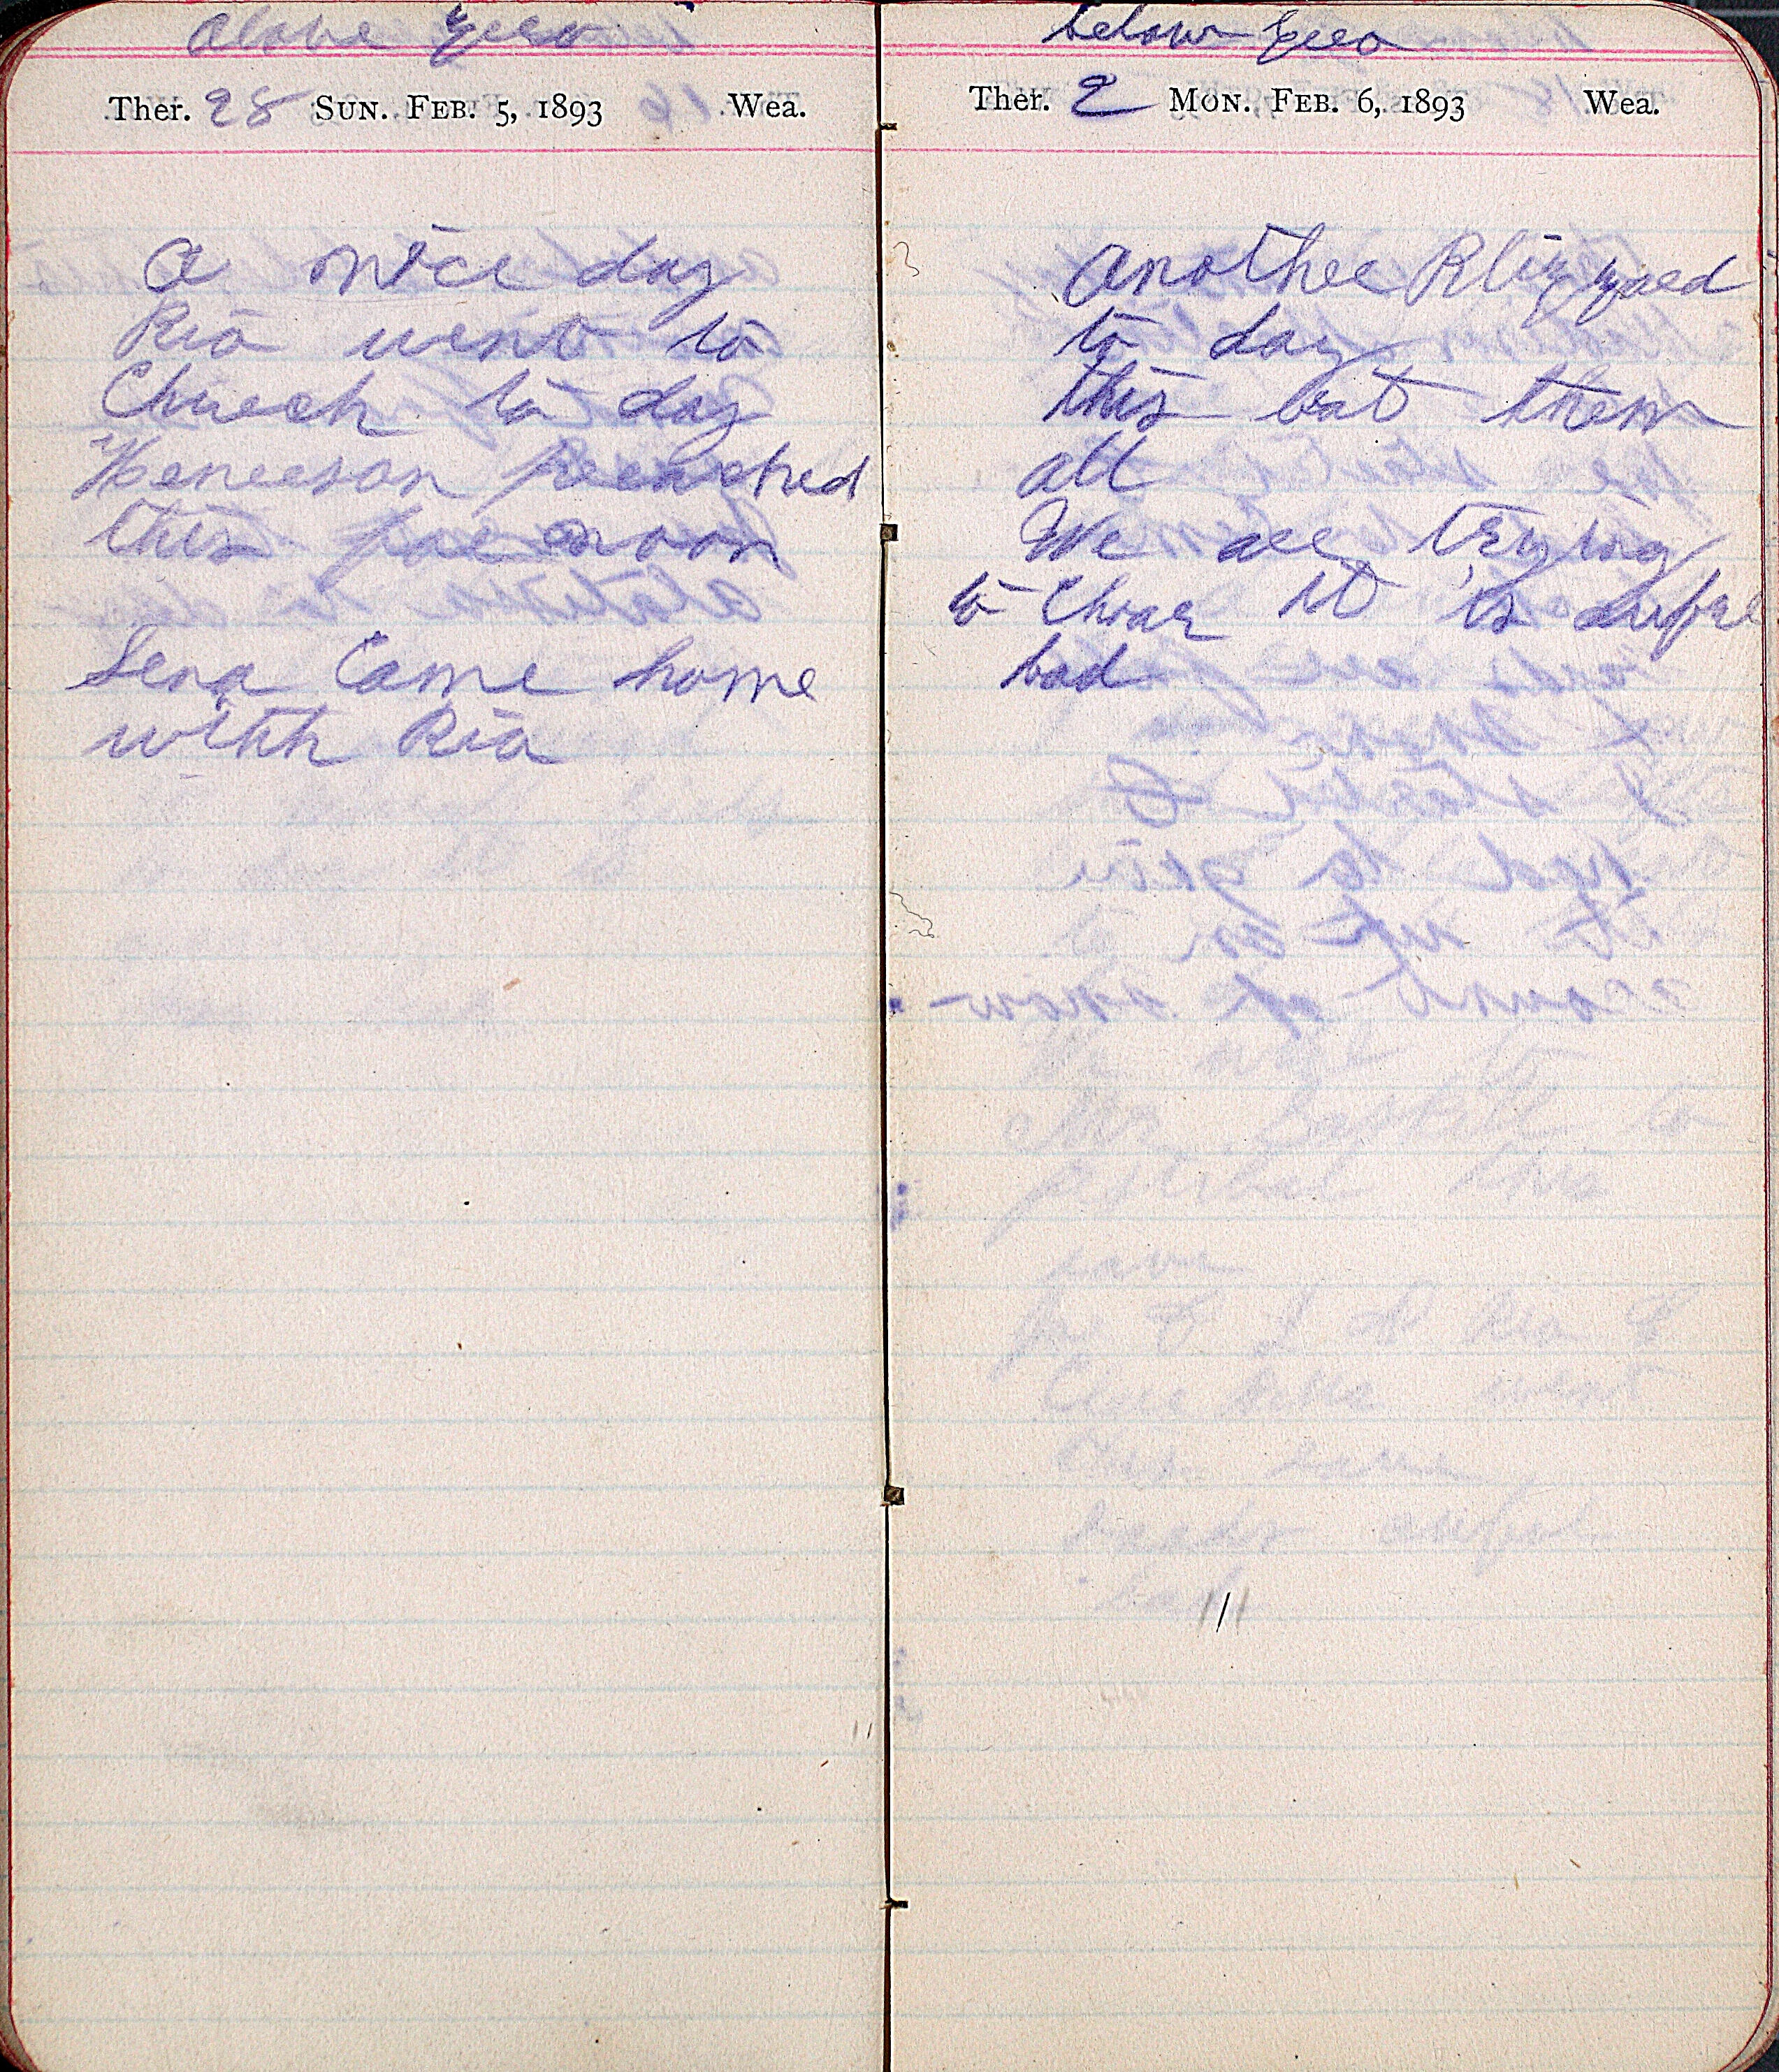 above zero
Ther. 28 SUN. FEB. 5, 1893 Wea.
a nice day
Ria went to
Church to day
preached
this fore noon
Lena Came home
with Ria
below zero
Ther. 2 MON. FEB. 6, 1893 Wea.
another Blizzard
to day
this bat them
all
We are trying
to it is awful
bad